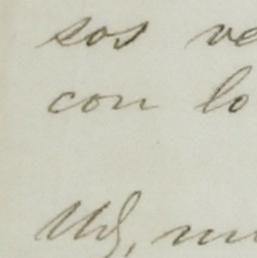 sos ve
con lo
Ud, mu